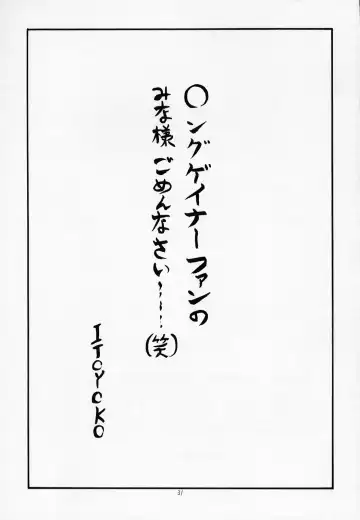 〇ングゲイナーファンの
みな様ごめんなさい〜……
(笑)
ITOYOKO
31